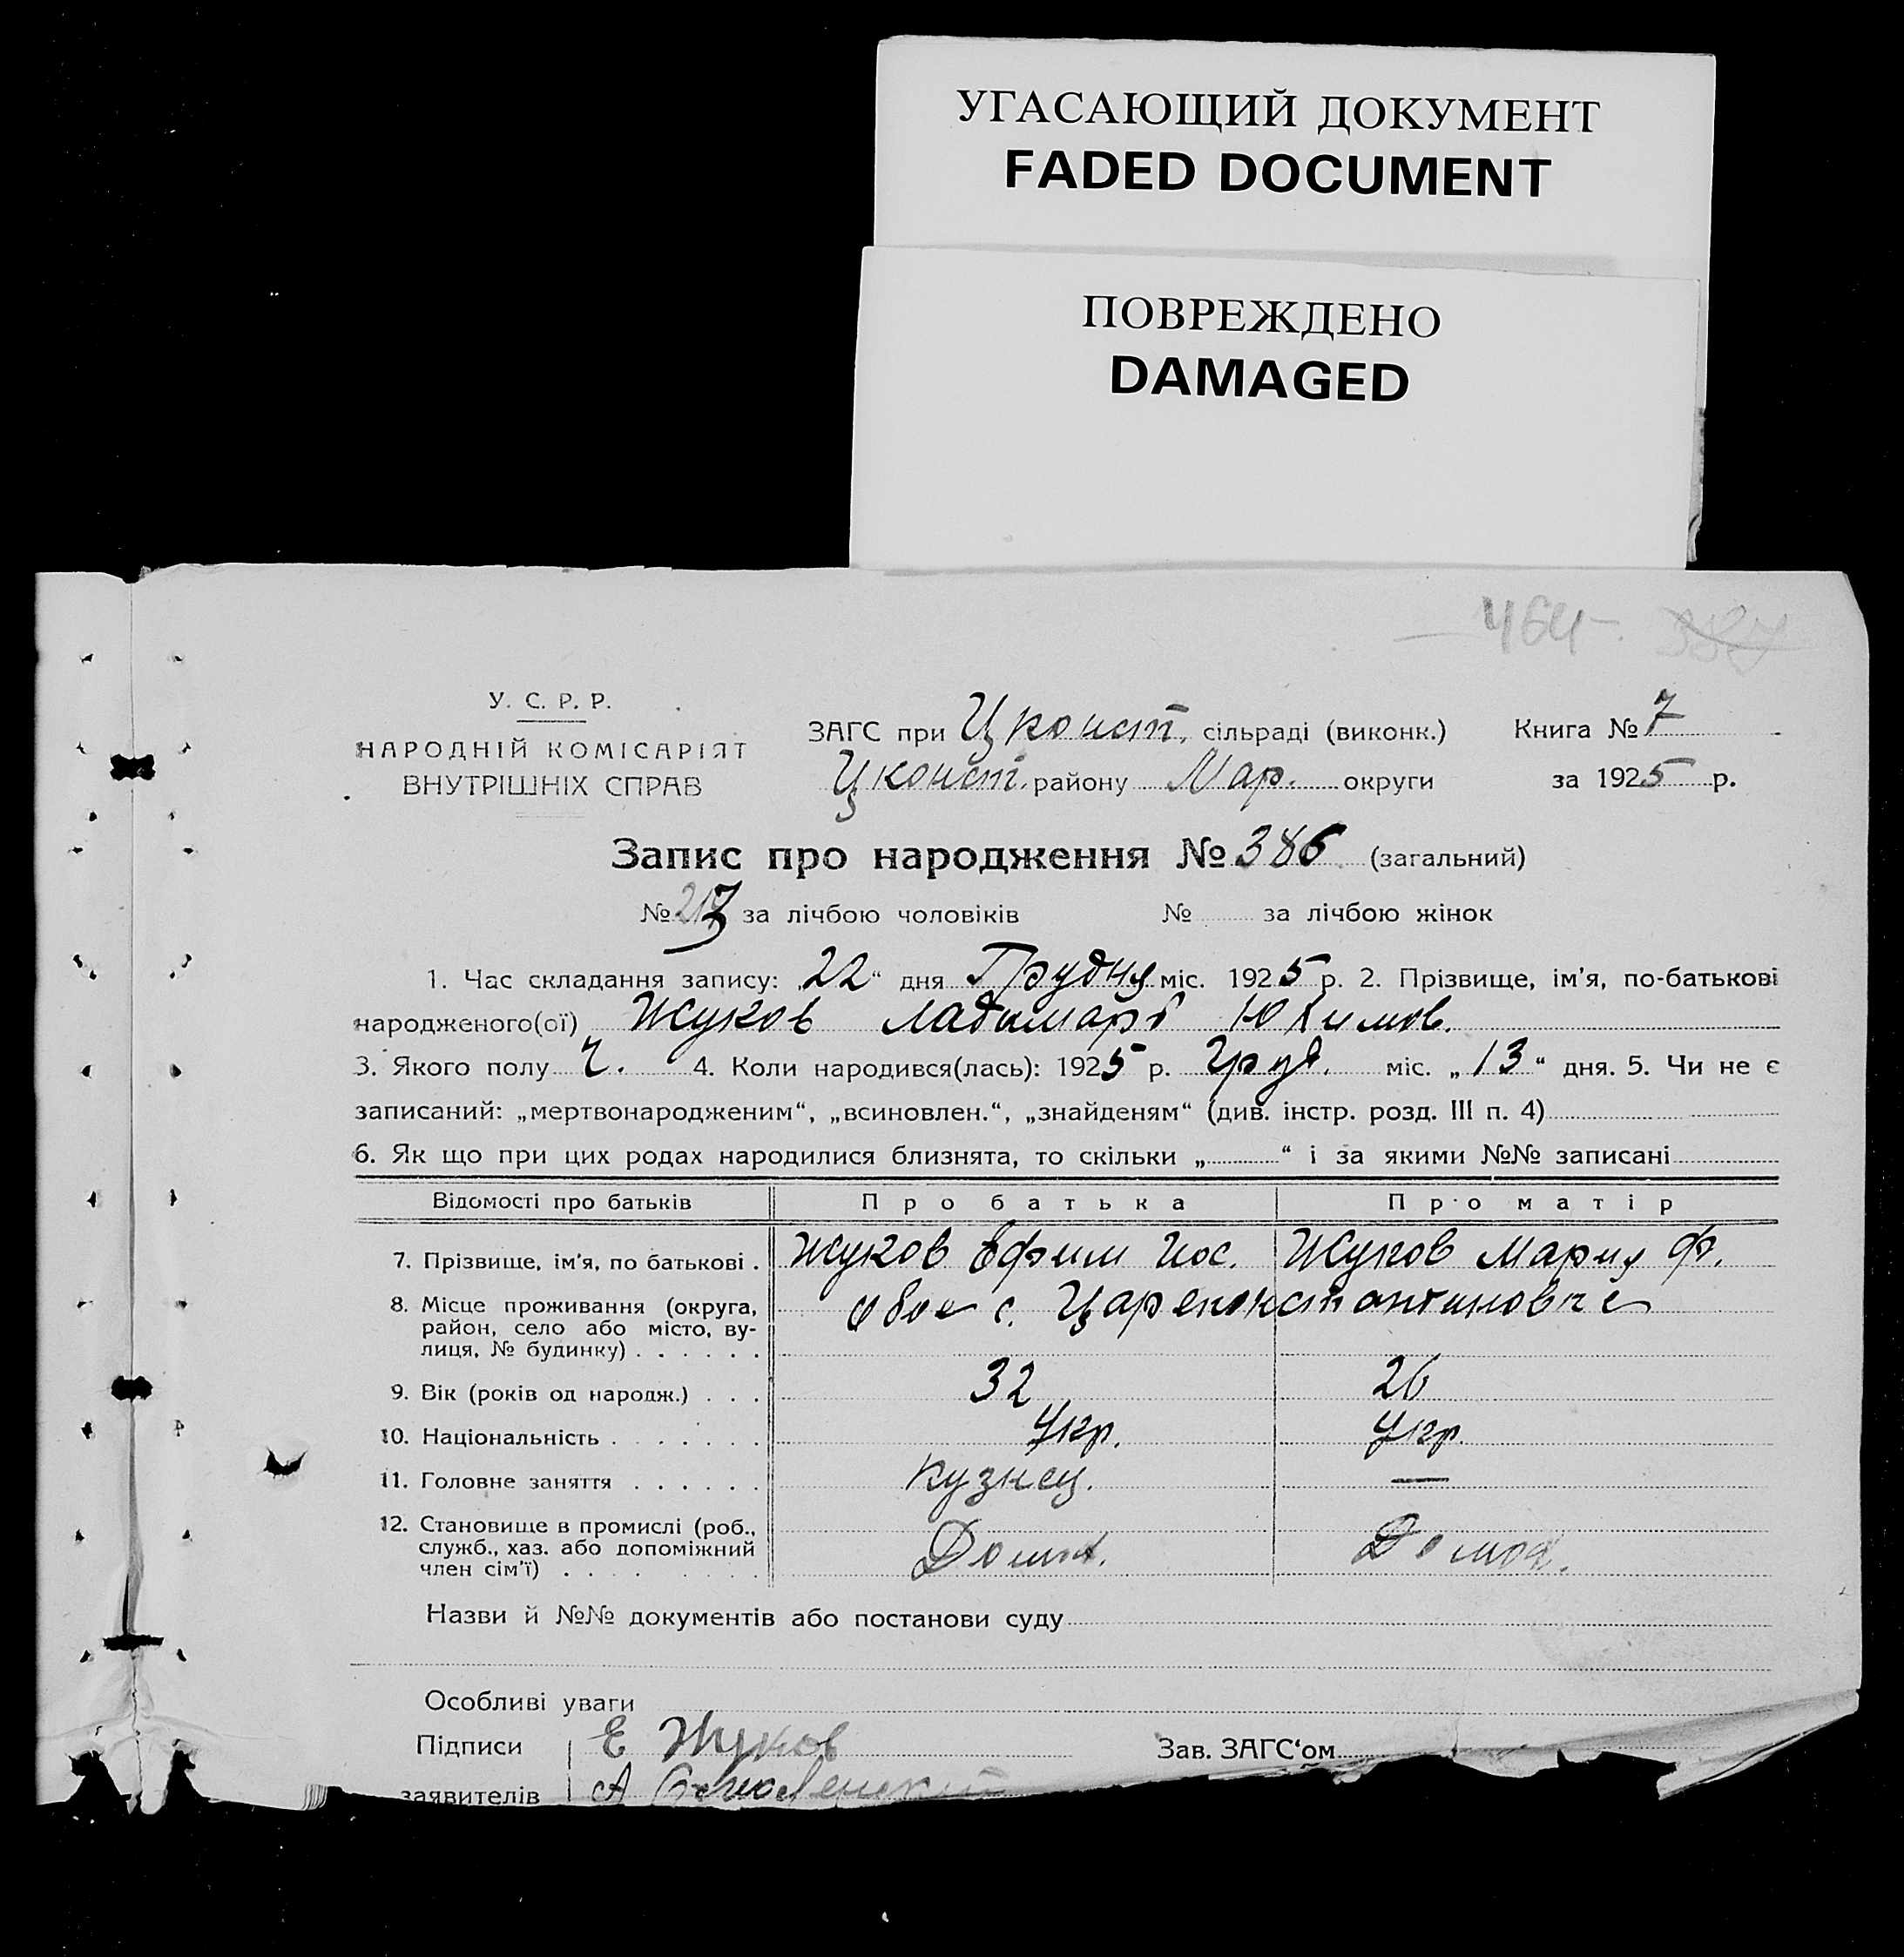 УГАСАЮЩИЙ ДОКУМЕНТ
FADED DOCUMENT
ПОВРЕЖДЕНО
DAMAGED
464
387
У. С. Р. Р.
НАРОДНІЙ КОМІСАРІЯТ
ВНУТРІШНІХ СПРАВ
ЗАГС при Цконст. сільраді (виконк.) Книга № 7
Цконст. району Мар. округи за 1925 р.
Запис про народження № 386 (загальний)
№ за лічбою чоловіків № за лічбою жінок
1. Час складання запису: „22“ дня Грудня міс. 1925 р. 2. Прізвище, ім'я, по-батькові
народженого(ої) Жуков Юхимов.
3. Якого полу Ч. 4. Коли народився(лась): 1925 р. Груд. міс. „13“ дня. 5. Чи не є
записаний: „мертвонародженим“, „всиновлен.“, „знайденям“ (див. інстр. розд. III п. 4)
6. Як що при цих родах народилися близнята, то скільки „ “ і за якими №№ записані
Відомості про батьків Про батька Про матір
7. Прізвище, ім'я, по батькові . Жуков Ефим Иос. Жуков Мария Ф.
8. Місце проживання (округа, обое с. Цареконстантиновке
район, село або місто, ву-
лиця, № будинку) . . . . . .
9. Вік (років од народж.) . . . 32 26
10. Національність . . . . . . . Укр. Укр.
11. Головне заняття . . . . . . кузнец. —
12. Становище в промислі (роб.,
служб., хаз. або допоміжний
член сім'ї) . . . . . . . . Домох.
Назви й №№ документів або постанови суду
Особливі уваги
Підписи Е Жуков Зав. ЗАГС'ом
заявителів А